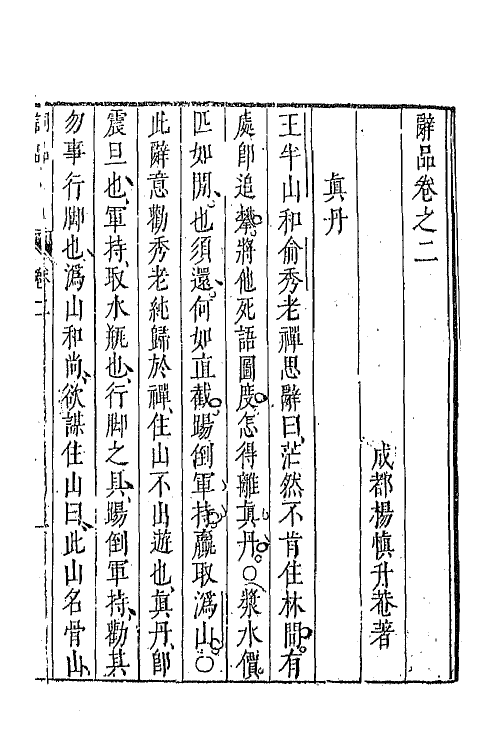 辭品卷之二
成都楊慎升菴著
真丹
王半山和俞秀老禪思辭曰茫然不肯住林間有
處即追攀將他死語圖度怎得離真丹○漿水價
匹如閒也須還何如直截踢倒軍持贏取溈山○
此辭意勸秀老純歸於禪住山不出遊也真丹即
震旦也軍持取水瓶也行脚之具踢倒軍持勸其
勿事行脚也溈山和尚欲謀住山曰此山名骨山